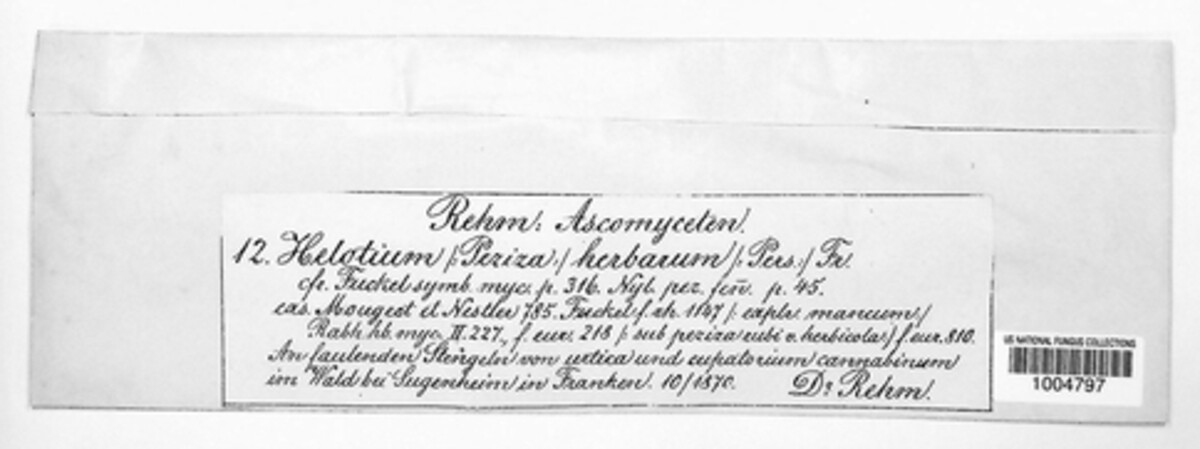 Rehm: Ascomyceten.
12. Helotium /: Peziza :/ herbarum /: Pers. :/ Fr.
cfr. Fuckel symb. myc. p. 316. Nyl. pez. fen̄. p. 45.
exs. Mougeot et Nestler 785. Fuckel f. rh. 1147 /: explr. mancum :/
Rabh. hb. myc. II. 227, f. eur. 218 /: sub peziza rubi v. herbicola :/ f. eur. 810.
An faulenden Stengeln von urtica und eupatorium cannabinum
im Wald bei Sugenheim in Franken. 10/1870. Dr. Rehm.
US NATIONAL FUNGUS COLLECTIONS
1004797